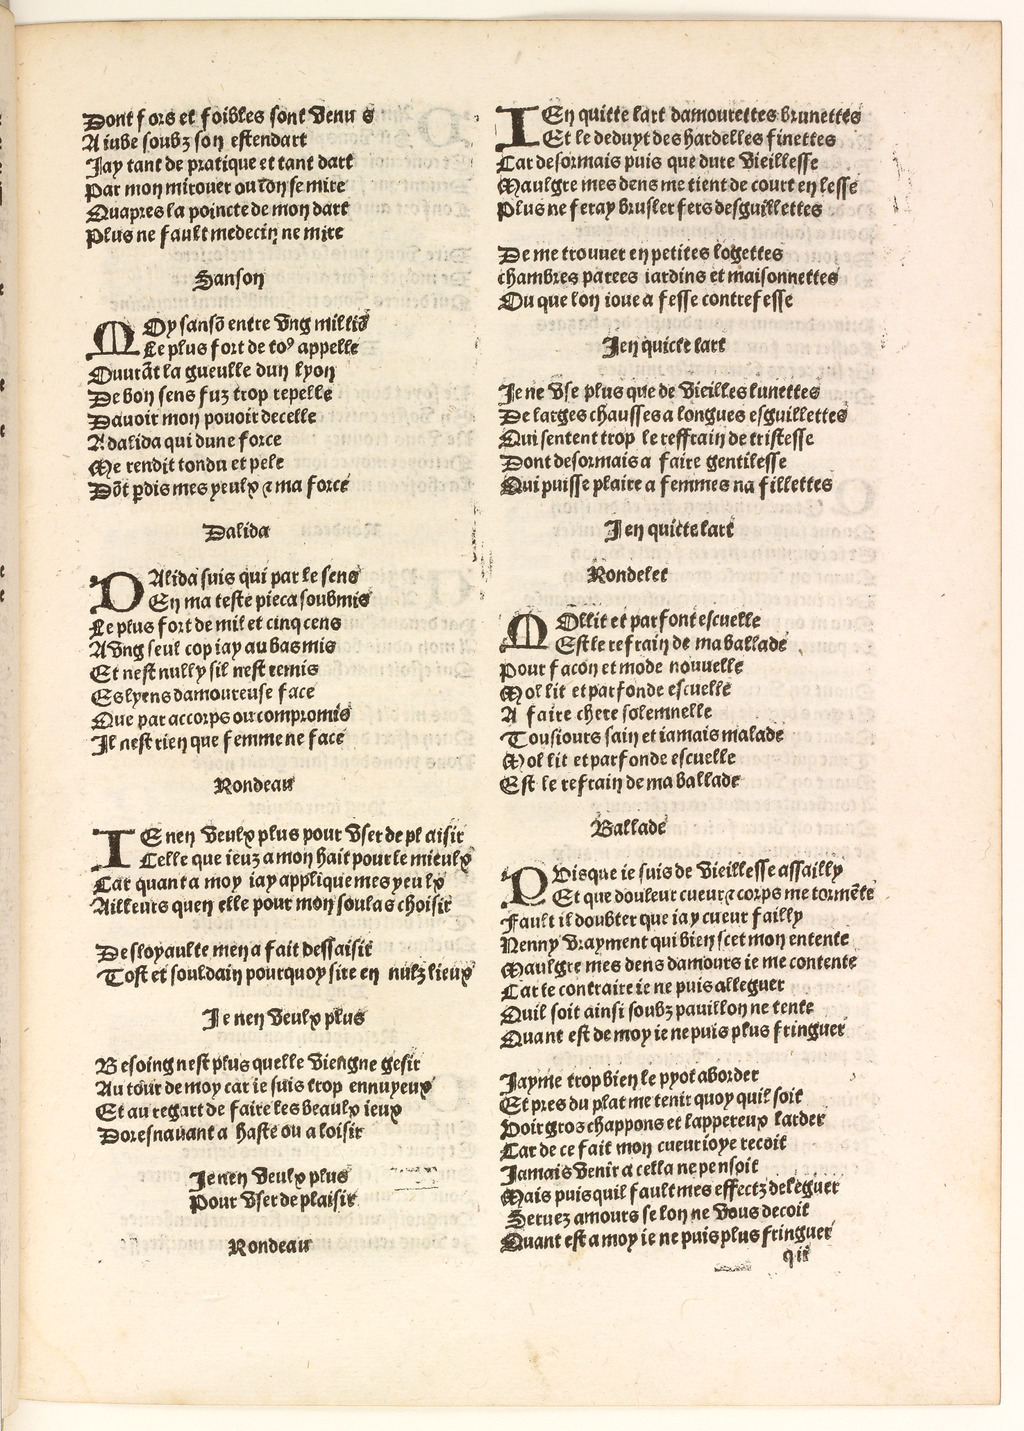 Dont fors et foibles sont Venu s
A iube soubz son estendart
Jay tant de pratique et tant dart
Par mon mirouer ou lon se mire
Quapres la poincte de mon dart
Plus ne fault medecin ne mire
Sanson
MOy sansō entre Vng milliō
Le plus fort de to⁹ appelle
Ouurāt la gueulle dun lyon
De bon sens fuz trop repelle
Dauoir mon pouoir decelle
A dalida qui dune force
Me rendit tondu et pele
Dōt pdis mes yeulx ⁊ ma force
Dalida
DAlida suis qui par le sens
En ma teste pieca soubmis
Le plus fort de mil et cinq cens
A Vng seul cop iay au bas mis
Et nest nully sil nest remis
Es lyens damoureuse face
Que par accorps ou compromis
Il nest rien que femme ne face
Rondeau
IE nen Veulx plus pour Vser de pl aisir
Celle que ieuz a mon hait pour le mieulx
Car quant a moy iay applique mes yeu lx
Ailleurs quen elle pour mon soulas choisir
Desloyaulte men a fait dessaisir
Tost et souldain pourquoy sire en nulz lieux
Je nen Veulx plus
Besoing nest plus quelle Viengne gesir
Au tour de moy car ie suis trop ennuyeux
Et au regart de faire les beaulx ieux
Doresnauant a haste ou a loisir
Je nen Veulx plus
Pour Vser de plaisir
Rondeau
IEn quitte lart damourettes brunettes
Et le deduyt des hardelles finettes
Car desormais puis que dure Vieillesse
Maulgre mes dens me tient de court en lesse
Plus ne feray brusler fers desguillettes
De me trouuer en petites logettes
chambres parees iardins et maisonnettes
Ou que lon ioue a fesse contrefesse
Jen quicte lart
Je ne Vse plus que de Vieilles lunettes
De larges chausses a longues esguillettes
Qui sentent trop le reffrain de tristesse
Dont desormais a faire gentilesse
Qui puisse plaire a femmes na fillettes
J en quicte lart
Rondelet
MOllit et parfont escuelle
Est le refrain de ma ballade
Pour facon et mode nouuelle
Mol lit et parfonde escuelle
A faire chere solemnelle
Tousiours sain et iamais malade
Mol lit et parfonde escuelle
Est le refrain de ma ballade
Ballade
PVisque ie suis de Vieillesse assailly
Et que douleur cueur ⁊ corps me tormēte
Fault il doubter que iay cueur failly
Nenny Vrayment qui bien scet mon entente
Maulgre mes dens damours ie me contente
Car le contraire ie ne puis alleguer
Quil soit ainsi soubz pauillon ne tente
Quant est de moy ie ne puis plus fringuer
Jayme trop bien le pyot aborder
Et pres du plat me tenir quoy quil soit
Voir gros chappons et lappereux larder
Car de ce fait mon cueur ioye recoit
Jamais Venir a cella ne pensoit
Mais puis quil fault mes effectz deleguer
Seruez amours se lon ne Vous decoit
Quant est a moy ie ne puis plus fringuer
q ii